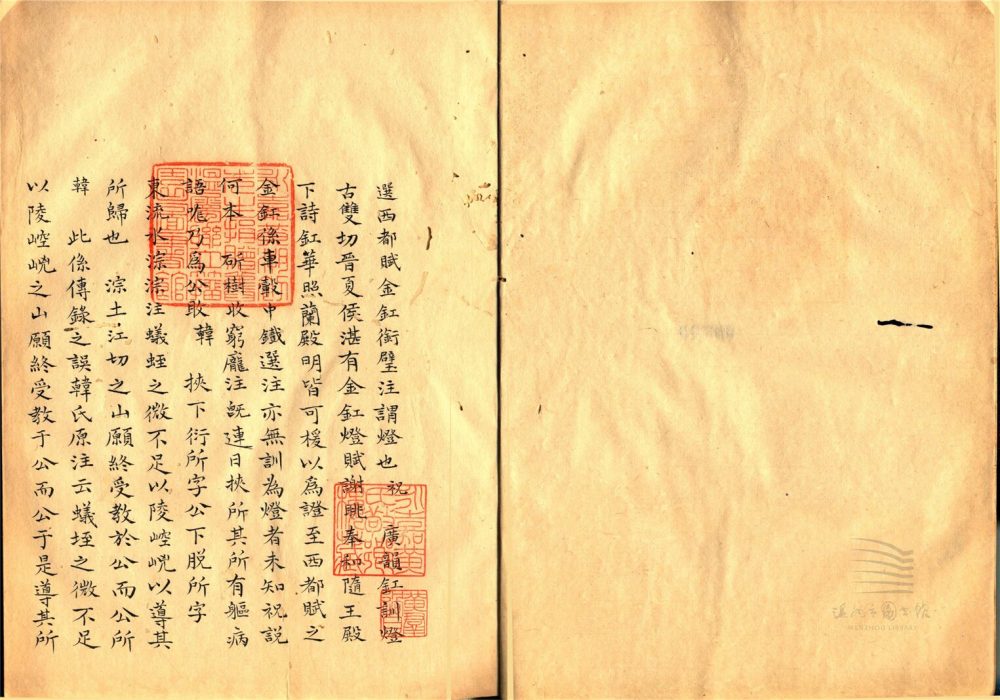 選西都賦金釭銜璧注謂燈也 祝 廣韻釭訓燈
古雙切晉夏侯湛有金釭燈賦謝眺奉和隨王殿
下詩釭華照蘭殿明皆可援以為證至西都賦之
金釭係車轂中鐵選注亦無訓為燈者未知祝說
何本 斫樹收窮龐注旣連日挾所其所有軀病
語 乃為公敢 韓 挾下衍所字公下脫所字
東流水淙淙注蟻蛭之微不足以陵崆峴以導其
所歸也 淙土江切之山願終受教於公而公所
韓 此係傳錄之誤韓氏原注云蟻垤之微不足
以陵崆峴之山願終受教于公而公于是導其所
WENZHOU LIBRARY